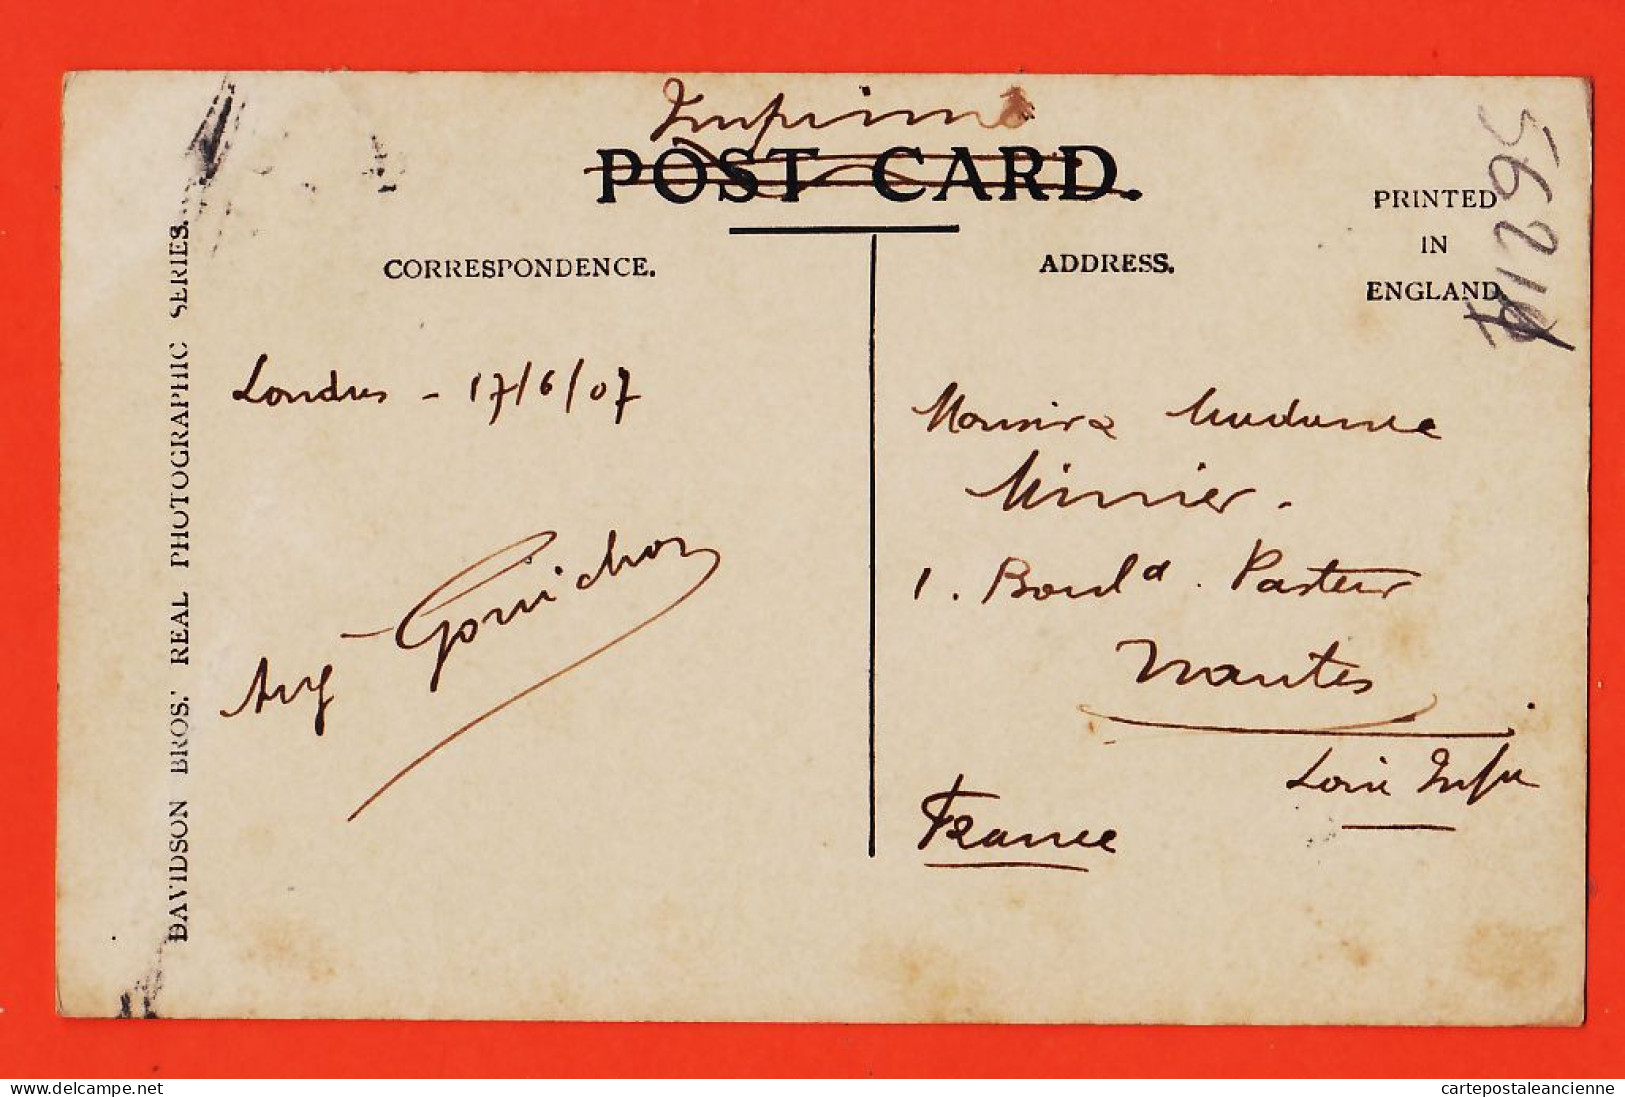 Imprimé
POST CARD.
CORRESPONDENCE.
ADDRESS.
PRINTED
IN
ENGLAND.
DAVIDSON BROS.' REAL PHOTOGRAPHIC SERIES.
Londres - 17/6/07
Aug Gouichon
Monsieur & Madame
Minier.
1. Bould. Pasteur
Nantes
Loire Infre
France
cartepostaleancienne